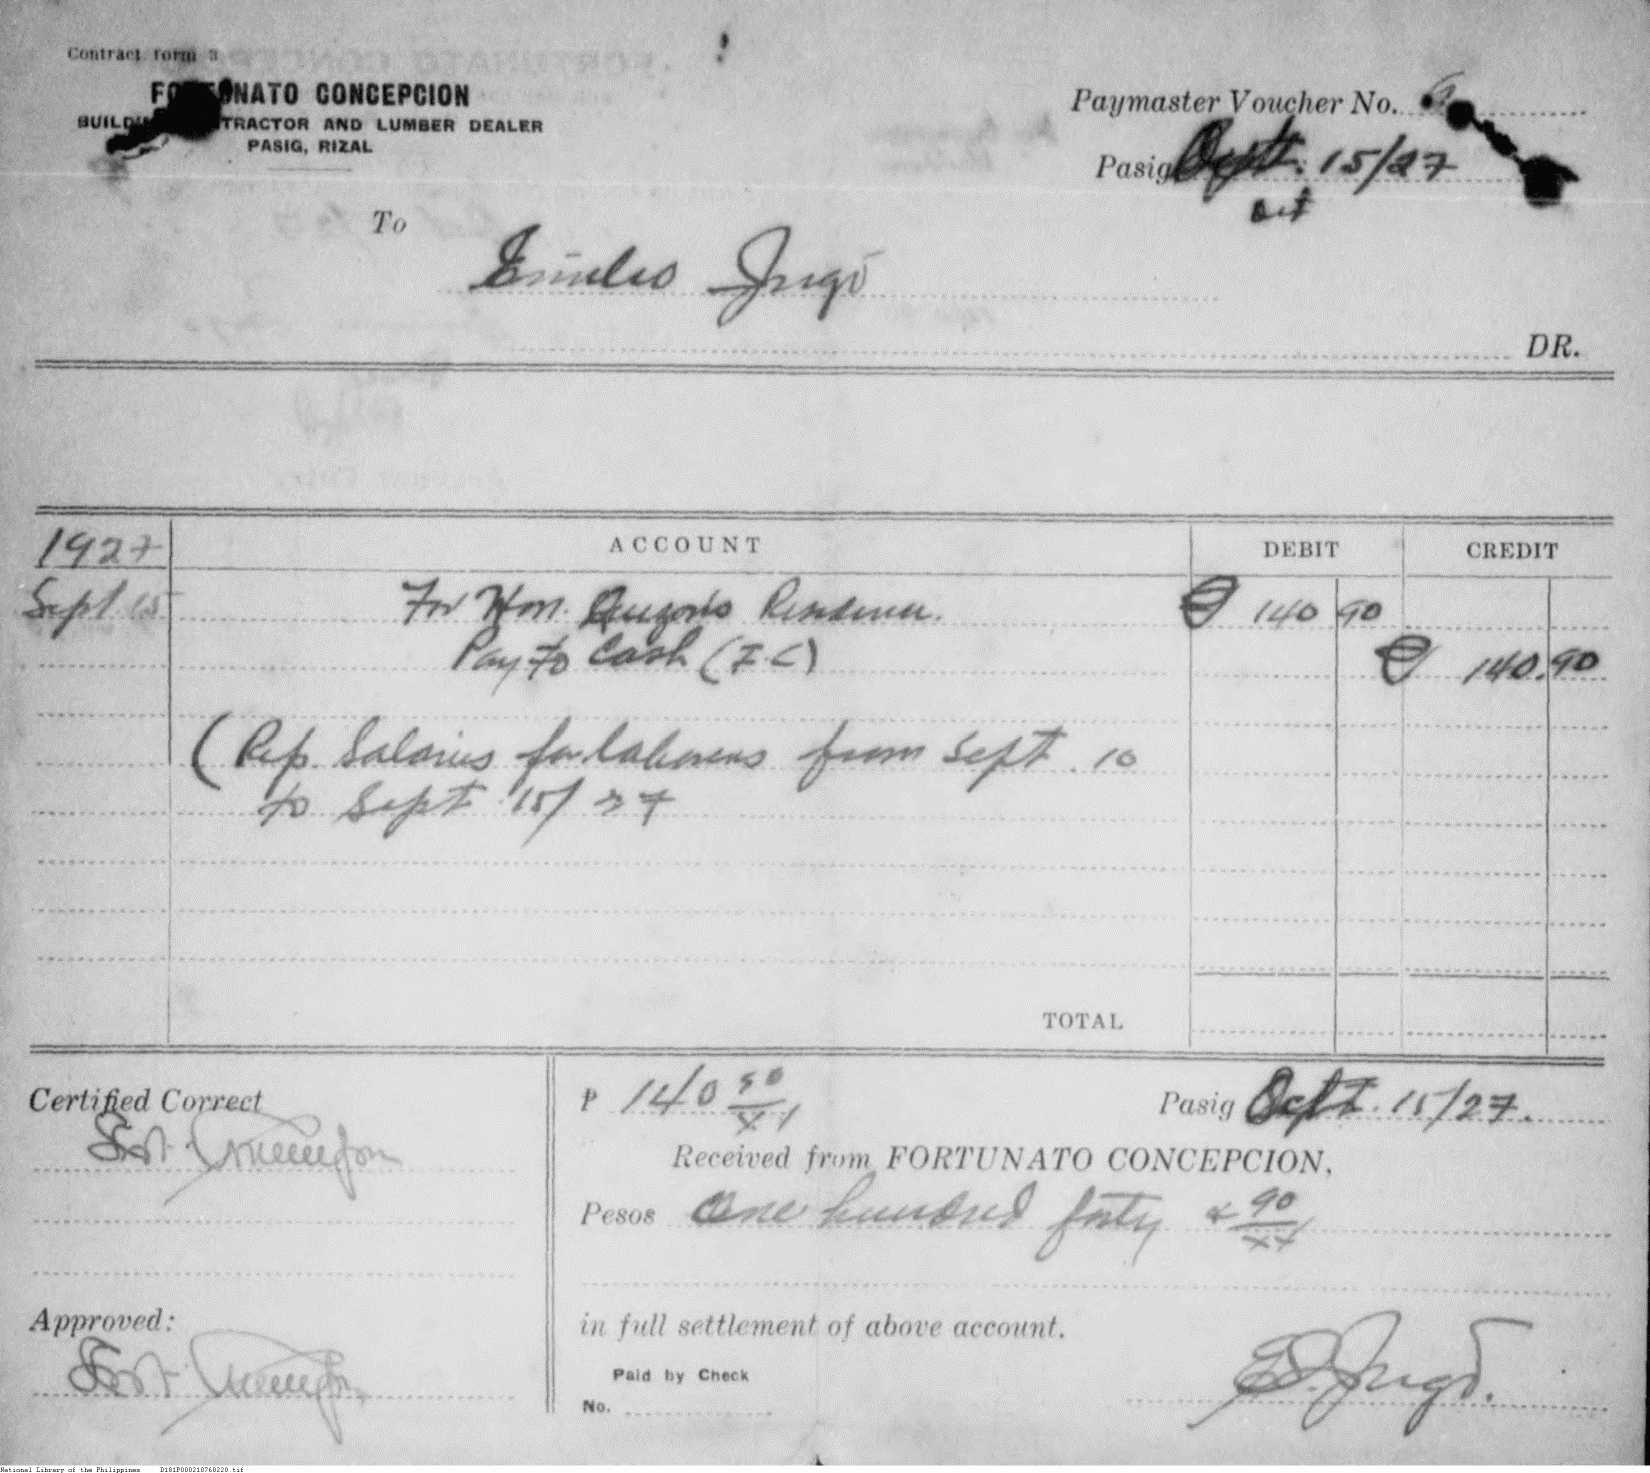 Contract form 3
FORTUNATO CONCEPCION
BUILDING CONTRACTOR AND LUMBER DEALER
PASIG, RIZAL
Paymaster Voucher No.
Pasig Sept. 15/27
Oct
To
Emilio Jugo
DR.
1927 ACCOUNT DEBIT CREDIT
Sept. 15 For Hon. Quezon's Residence. ₱ 140 90
Pay to Cash (F.C) ₱ 140.90
(Rep. Salaries for laborers from Sept. 10
to Sept. 15/27
TOTAL
Certified Correct
Fort. Concepcion
₱ 140 90/xx
Pasig Sept. 15/27.
Received from FORTUNATO CONCEPCION,
Pesos One hundred forty & 90/xx
Approved:
Fort. Concepcion
in full settlement of above account.
Paid by Check
No.
E. Jugo.
National Library of the Philippines D181P000210760220.tif